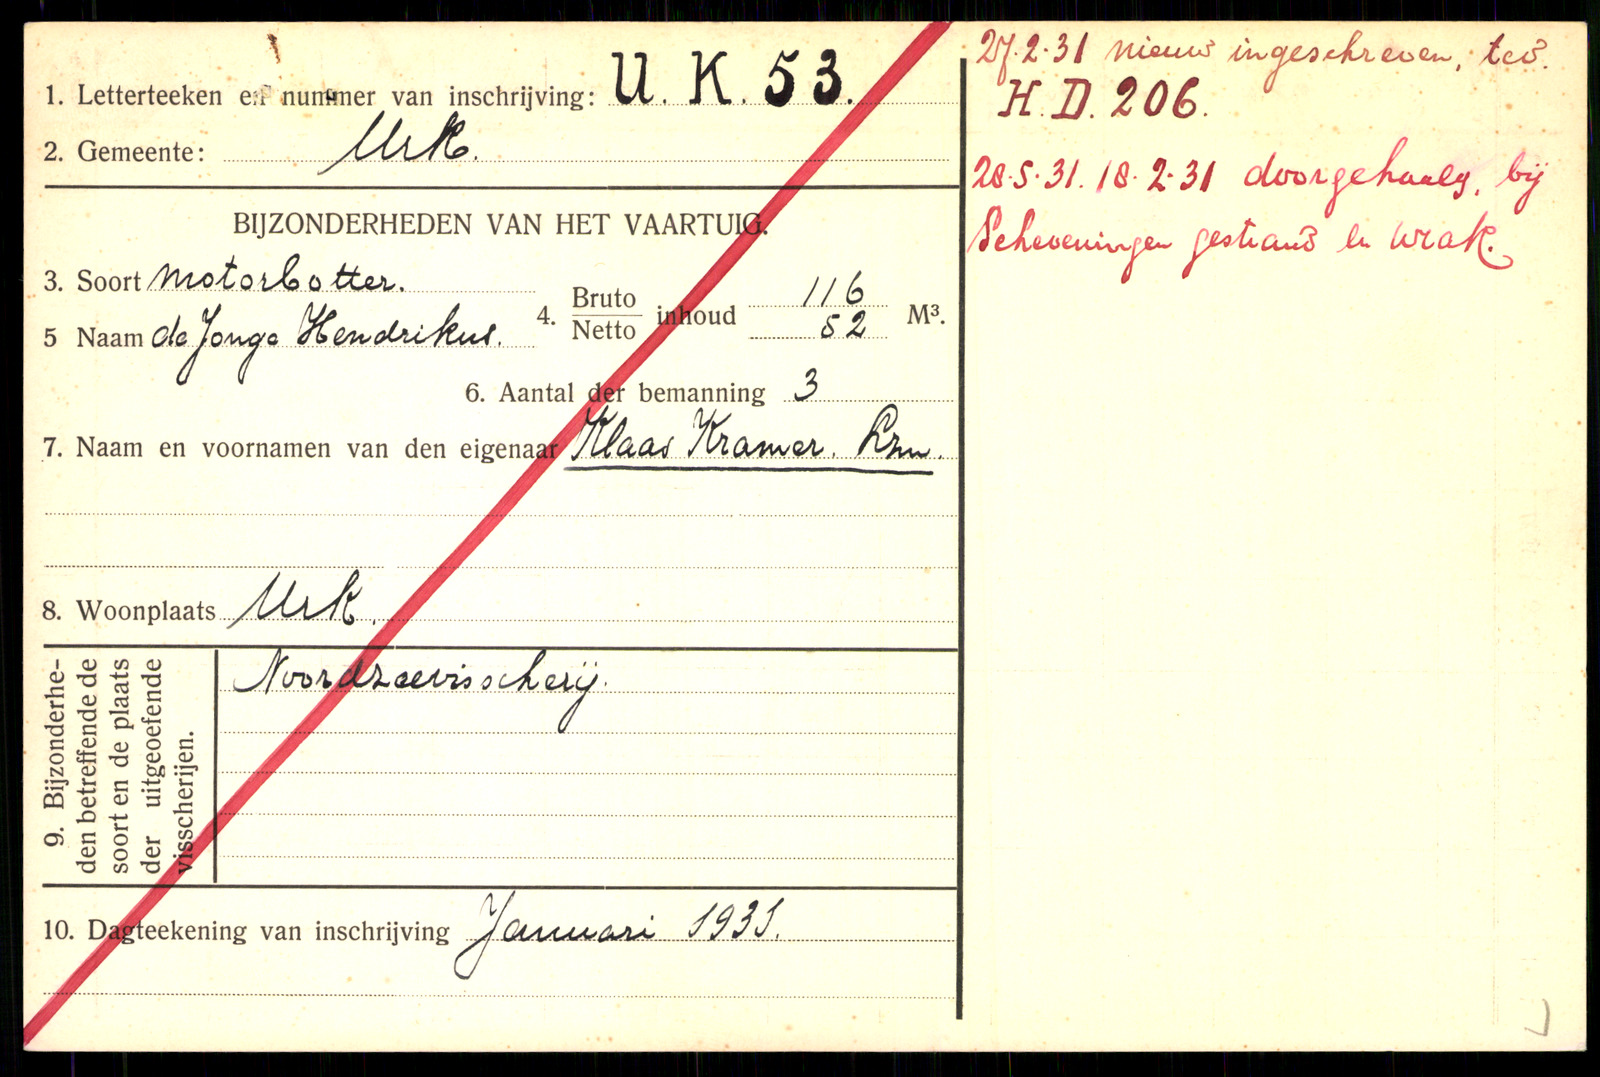 1. Letterteeken en nummer van inschrijving: U. K. 53.
2. Gemeente: Urk.
BIJZONDERHEDEN VAN HET VAARTUIG.
3. Soort motorbotter.
4. Bruto / Netto inhoud 116 / 52 M³.
5 Naam de Jonge Hendrikus.
6. Aantal der bemanning 3
7. Naam en voornamen van den eigenaar Klaas Kramer.
8. Woonplaats Urk.
9. Bijzonderhe-
den betreffende de
soort en de plaats
der uitgeoefende
visscherijen.
Noordzeevisscherij.
10. Dagteekening van inschrijving Januari 1931.
27.2.31 nieuw ingeschreven, tev.
H.D. 206.
28.5.31. 18.2.31 doorgehaald, bij
Scheveningen gestrand en wrak.